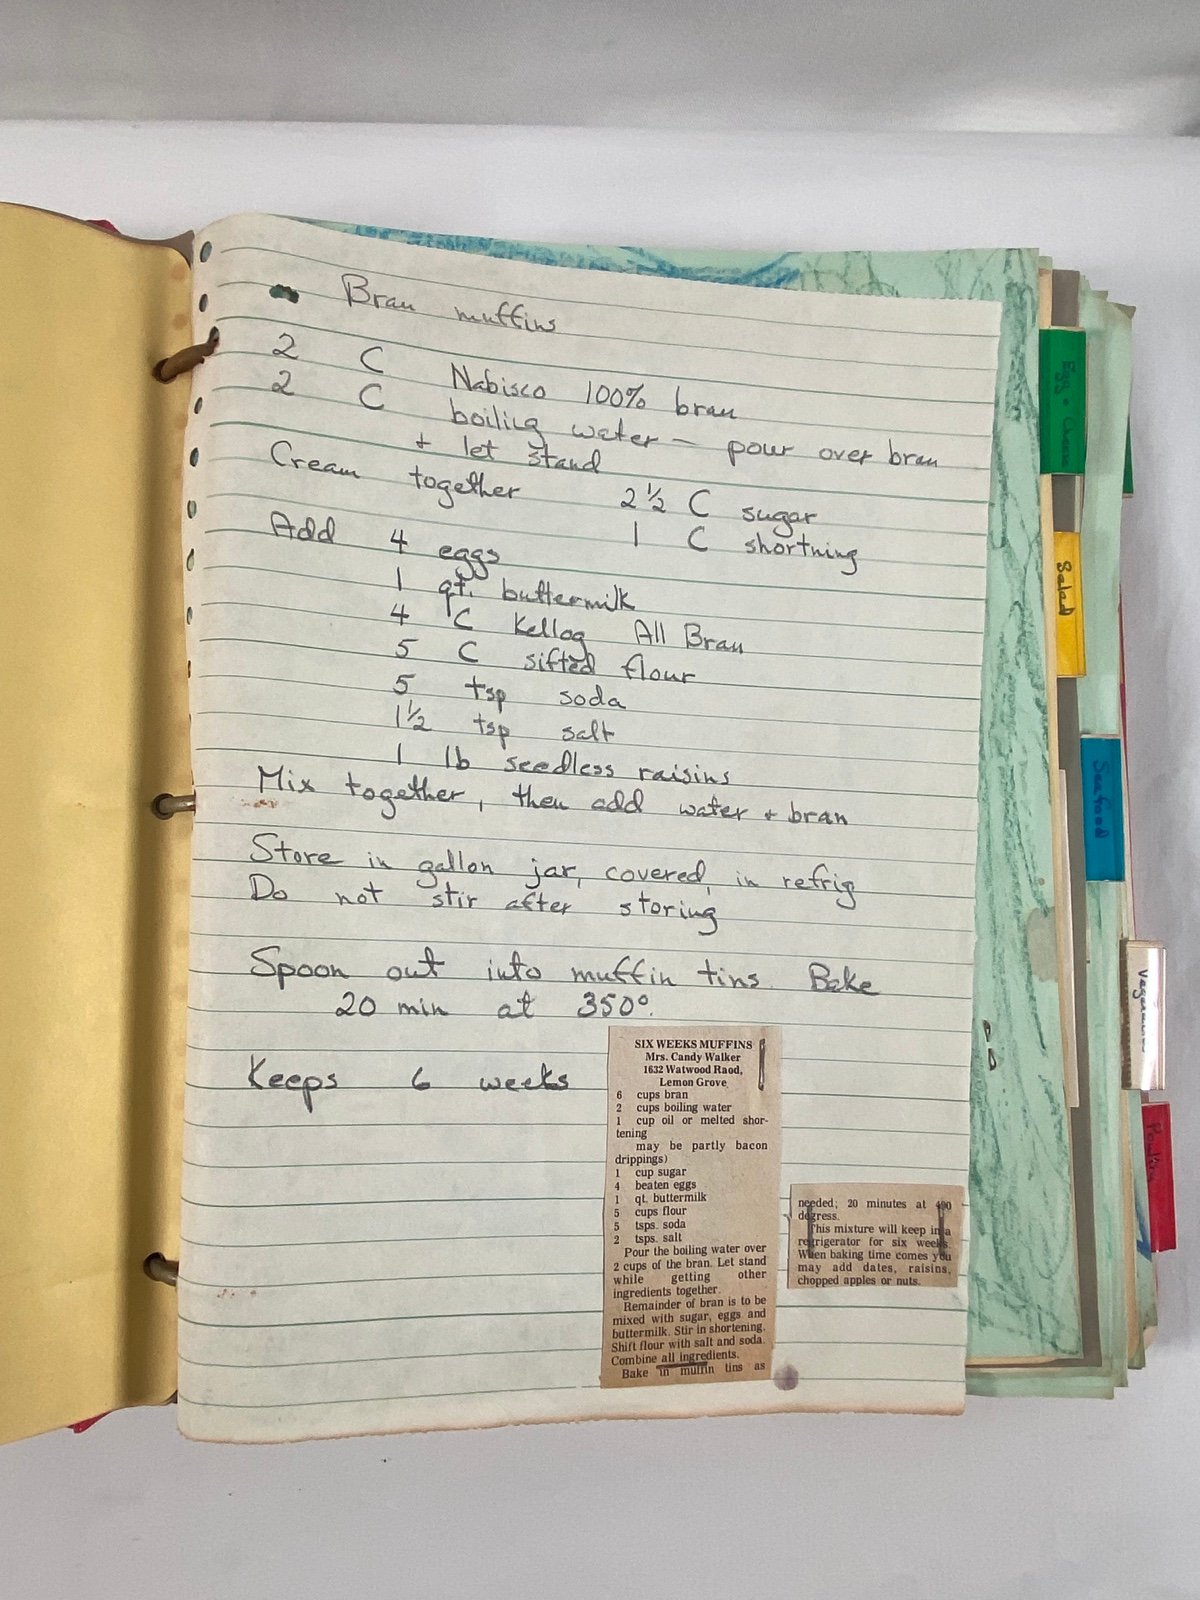 Bran muffins
2 C Nabisco 100% bran
2 C boiling water – pour over bran
+ let stand
Cream together 2 1/2 C sugar
1 C shortning
Add 4 eggs
1 qt. buttermilk
4 C Kellog All Bran
5 C sifted flour
5 tsp soda
1 1/2 tsp salt
1 lb seedless raisins
Mix together, then add water + bran
Store in gallon jar, covered, in refrig
Do not stir after storing
Spoon out into muffin tins. Bake
20 min at 350°.
Keeps 6 weeks
SIX WEEKS MUFFINS
Mrs. Candy Walker
1632 Watwood Raod,
Lemon Grove
6 cups bran
2 cups boiling water
1 cup oil or melted shor-
tening
may be partly bacon
drippings)
1 cup sugar
4 beaten eggs
1 qt. buttermilk
5 cups flour
5 tsps. soda
2 tsps. salt
Pour the boiling water over
2 cups of the bran. Let stand
while getting other
ingredients together.
Remainder of bran is to be
mixed with sugar, eggs and
buttermilk. Stir in shortening.
Shift flour with salt and soda.
Combine all ingredients.
Bake in muffin tins as
needed; 20 minutes at 400
degress.
This mixture will keep in a
refrigerator for six weeks.
When baking time comes you
may add dates, raisins,
chopped apples or nuts.
Egg + Cheese
Salad
Seafood
Vegetables
Poultry